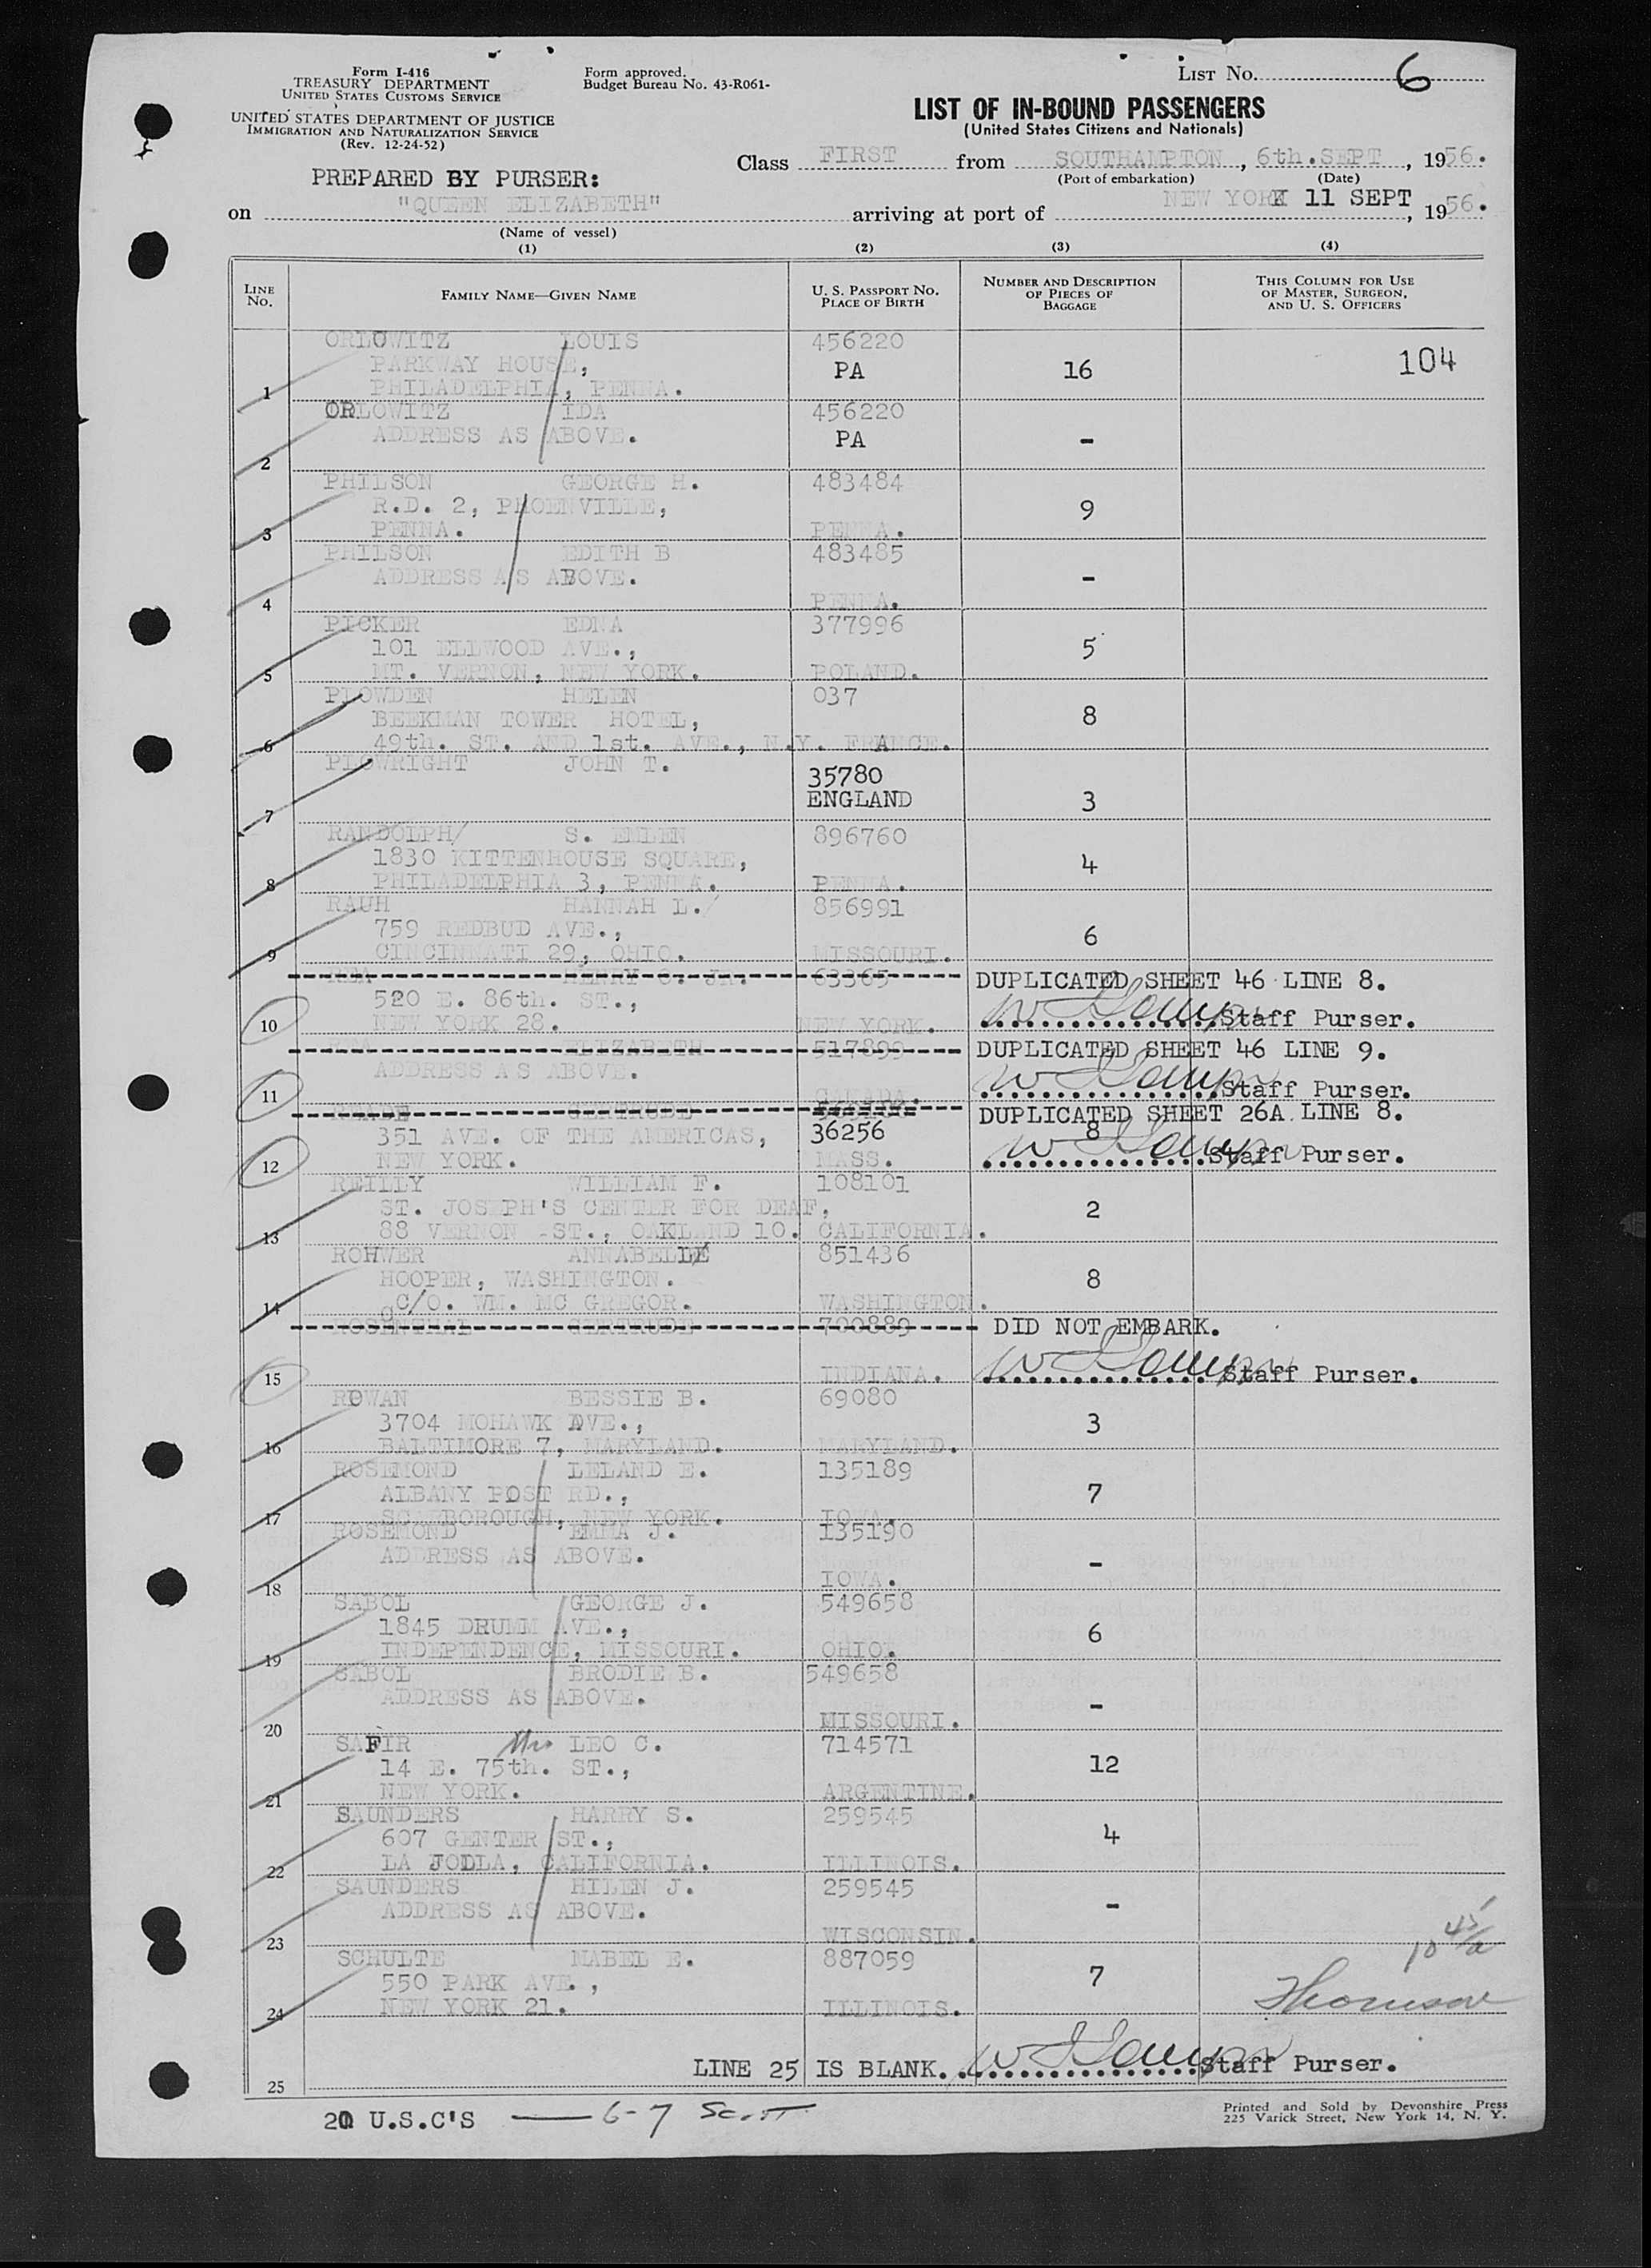 Form I-416
TREASURY DEPARTMENT
UNITED STATES CUSTOMS SERVICE
UNITED STATES DEPARTMENT OF JUSTICE
IMMIGRATION AND NATURALIZATION SERVICE
(Rev. 12-24-52)
Form approved.
Budget Bureau No. 43-R061-
LIST NO. 6
LIST OF IN-BOUND PASSENGERS
(United States Citizens and Nationals)
Class FIRST from SOUTHAMPTON, 6th.SEPT, 1956.
(Port of embarkation) (Date)
PREPARED BY PURSER:
on "QUEEN ELIZABETH" arriving at port of NEW YORK 11 SEPT, 1956.
(Name of vessel)
(1) (2) (3) (4)
LINE NO. FAMILY NAME—GIVEN NAME U. S. PASSPORT NO. PLACE OF BIRTH NUMBER AND DESCRIPTION OF PIECES OF BAGGAGE THIS COLUMN FOR USE OF MASTER, SURGEON, AND U. S. OFFICERS
ORLOWITZ LOUIS 456220
PARKWAY HOUSE, PA 16 104
1 PHILADELPHIA, PENNA.
ORLOWITZ IDA 456220
ADDRESS AS ABOVE. PA -
2
PHILSON GEORGE H. 483484
R.D. 2, PHOENVILLE, 9
3 PENNA. PENNA.
PHILSON EDITH B 483485
ADDRESS AS ABOVE. -
4 PENNA.
PICKER EDNA 377996
101 ELLWOOD AVE., 5
5 MT. VERNON, NEW YORK. POLAND.
PLOWDEN HELEN 037
BEEKMAN TOWER HOTEL, 8
6 49th. ST. AND 1st. AVE., N.Y. FRANCE.
PLOWRIGHT JOHN T. 35780
ENGLAND 3
7
RANDOLPH S. EMLEN 896760
1830 KITTENHOUSE SQUARE, 4
8 PHILADELPHIA 3, PENNA. PENNA.
RAUH HANNAH L. 856991
759 REDBUD AVE., 6
9 CINCINNATI 29, OHIO. MISSOURI.
REA HENRY O. JR. 63365 DUPLICATED SHEET 46 LINE 8.
520 E. 86th. ST.,
10 NEW YORK 28. NEW YORK. Staff Purser.
REA ELIZABETH 517899 DUPLICATED SHEET 46 LINE 9.
ADDRESS AS ABOVE.
11 CANADA. Staff Purser.
GERTRUDE DUPLICATED SHEET 26A LINE 8.
351 AVE. OF THE AMERICAS, 36256 8
12 NEW YORK. MASS. Staff Purser.
REILLY WILLIAM F. 108101
ST. JOSEPH'S CENTER FOR DEAF, 2
13 88 VERNON ST., OAKLAND 10. CALIFORNIA.
ROHWER ANNABELLE 851436
HOOPER, WASHINGTON. 8
14 C/O. WM. MC GREGOR. WASHINGTON.
ROSENTHAL GERTRUDE 700889 DID NOT EMBARK.
15 INDIANA. Staff Purser.
ROWAN BESSIE B. 69080
3704 MOHAWK AVE., 3
16 BALTIMORE 7, MARYLAND. MARYLAND.
ROSEMOND LELAND E. 135189
ALBANY POST RD., 7
17 SCARBOROUGH, NEW YORK. IOWA.
ROSEMOND EMMA J. 135190
ADDRESS AS ABOVE. -
18 IOWA.
SABOL GEORGE J. 549658
1845 DRUMM AVE., 6
19 INDEPENDENCE, MISSOURI. OHIO.
SABOL BRODIE B. 549658
ADDRESS AS ABOVE. -
20 MISSOURI.
SAFIR Mrs LEO C. 714571
14 E. 75th. ST., 12
21 NEW YORK. ARGENTINE.
SAUNDERS HARRY S. 259545
607 GENTER ST., 4
22 LA JODLA, CALIFORNIA. ILLINOIS.
SAUNDERS HILEN J. 259545
ADDRESS AS ABOVE. -
23 WISCONSIN.
SCHULTE MABEL E. 887059
550 PARK AVE., 7
24 NEW YORK 21. ILLINOIS. Thomson
LINE 25 IS BLANK. Staff Purser.
25
20 U.S.C'S — 6-7 Scott
Printed and Sold by Devonshire Press
225 Varick Street, New York 14, N. Y.